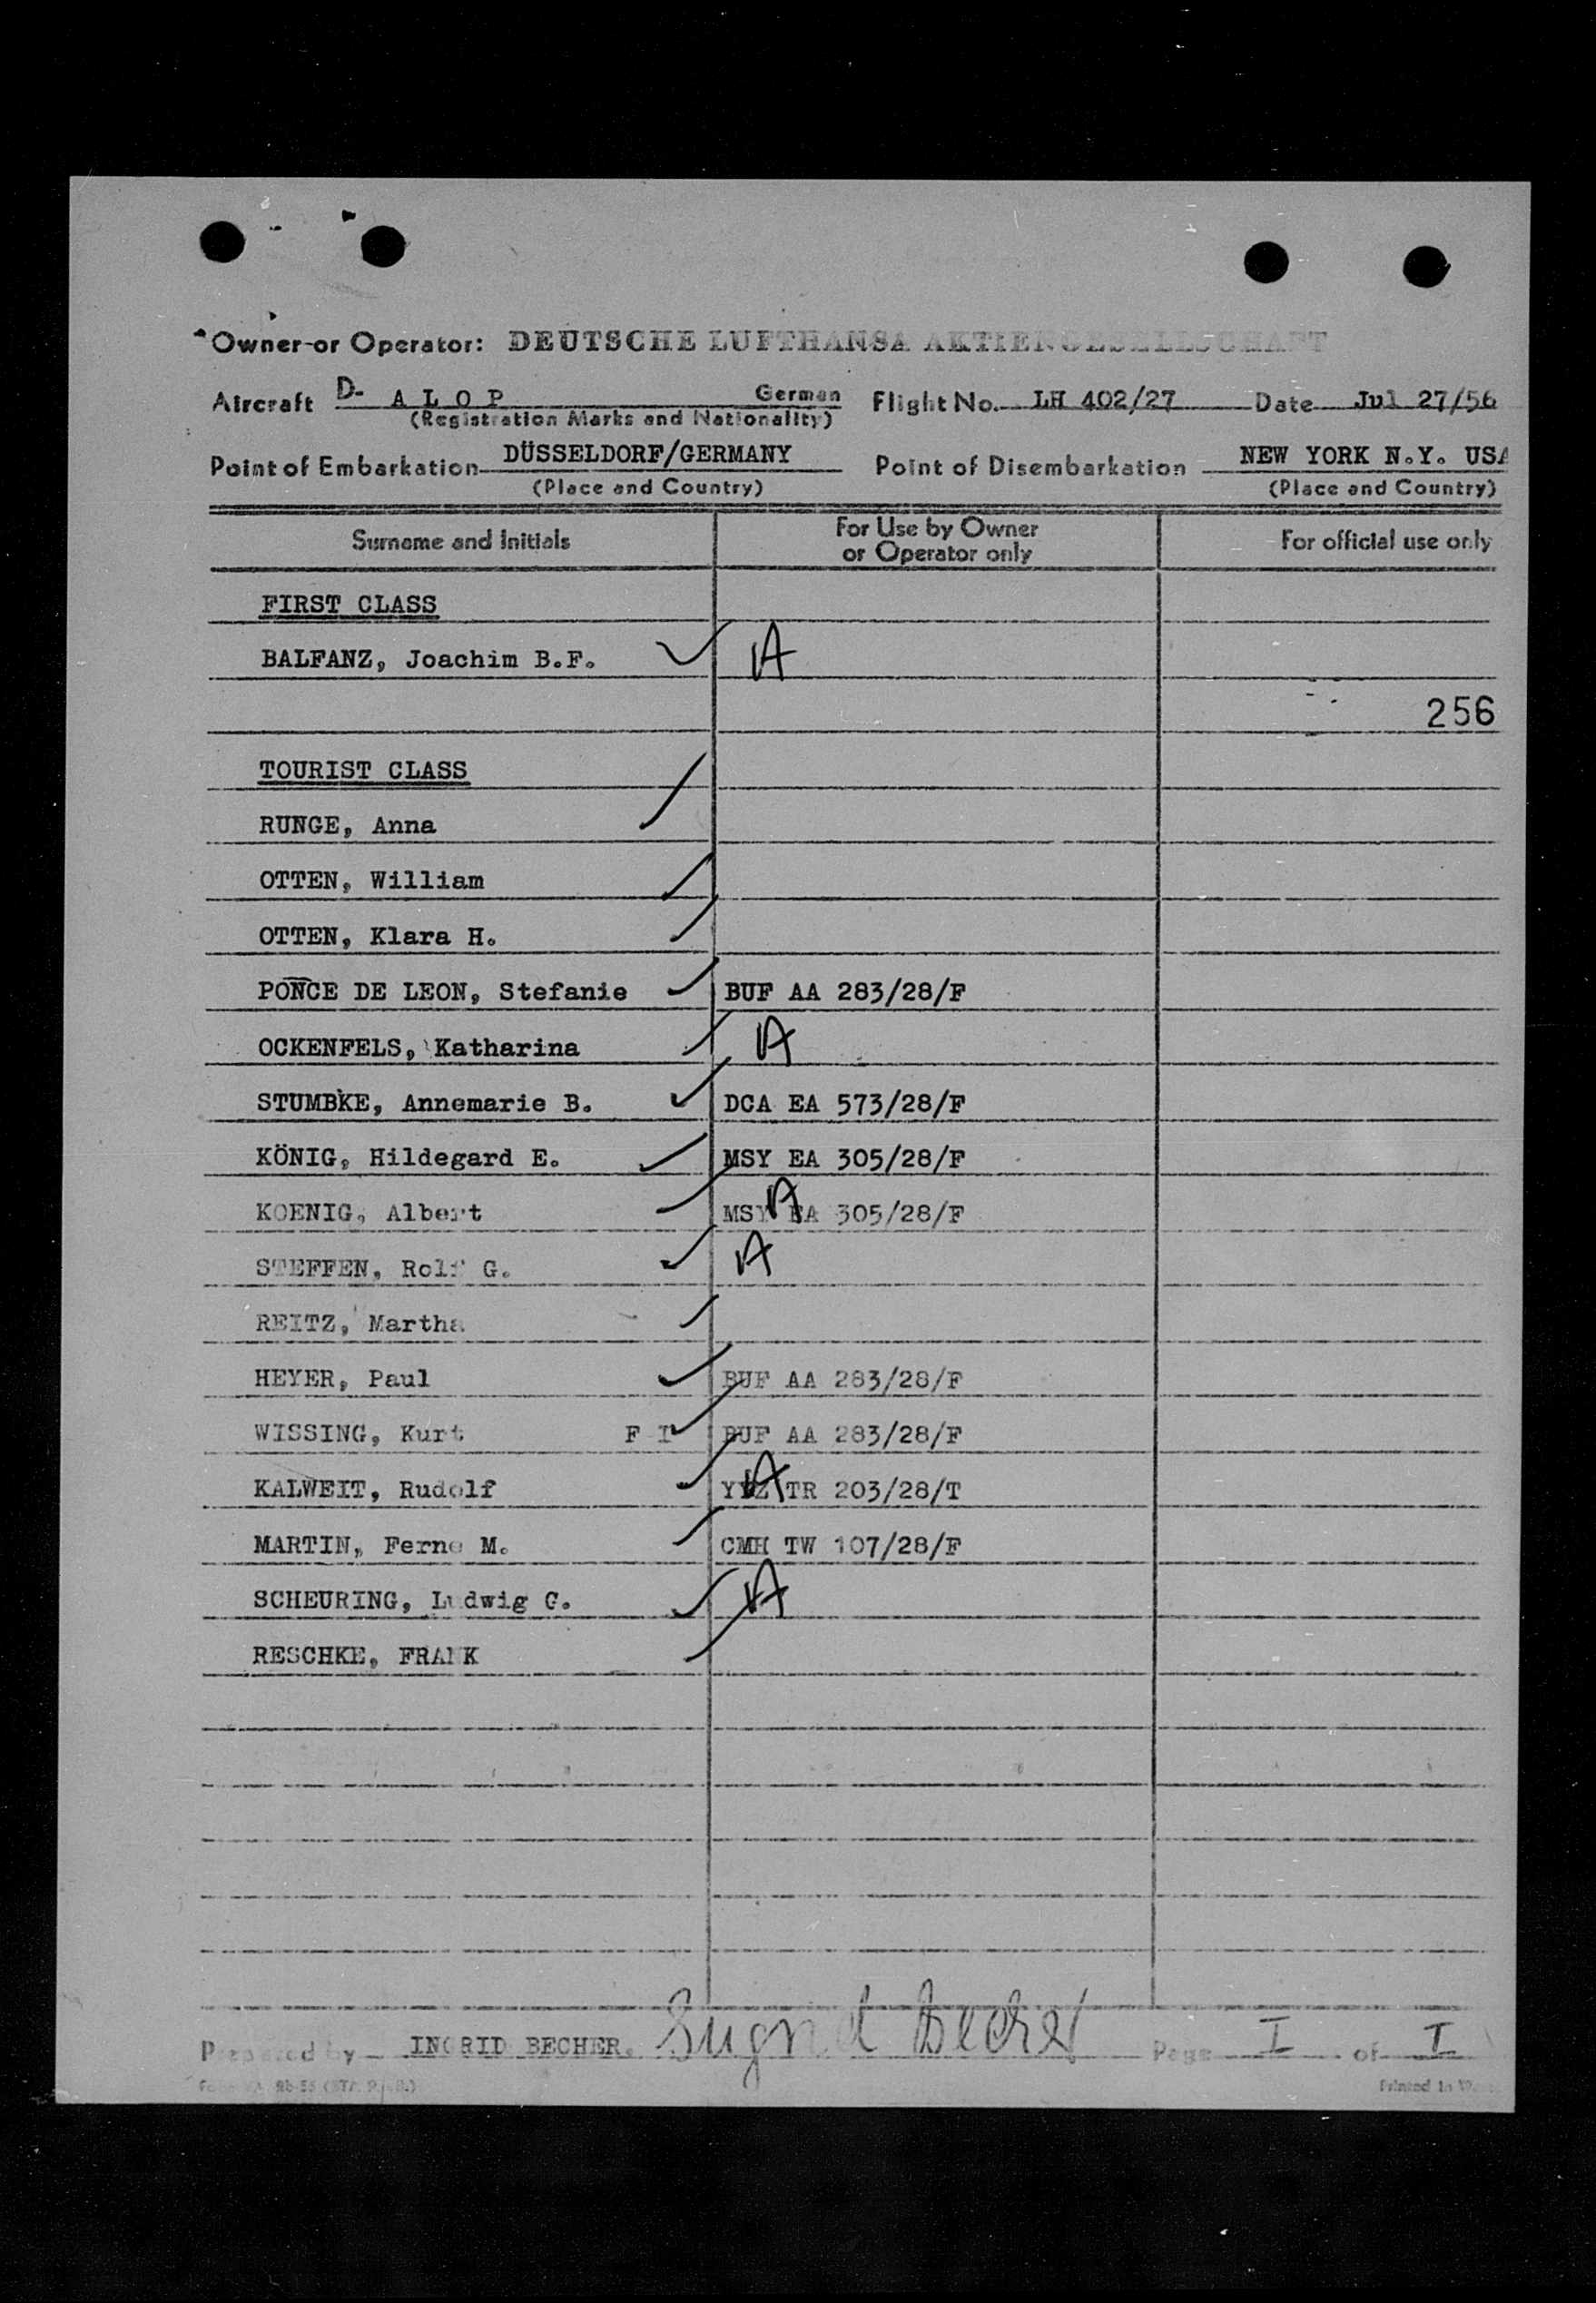 Owner or Operator: DEUTSCHE LUFTHANSA AKTIENGESELLSCHAFT
Aircraft D- A L O P German Flight No. LH 402/27 Date Jul 27/56
(Registration Marks and Nationality)
Point of Embarkation DÜSSELDORF/GERMANY Point of Disembarkation NEW YORK N.Y. USA
(Place and Country) (Place and Country)
Surname and Initials For Use by Owner or Operator only For official use only
FIRST CLASS
BALFANZ, Joachim B.F. A
256
TOURIST CLASS
RUNGE, Anna
OTTEN, William
OTTEN, Klara H.
PONCE DE LEON, Stefanie BUF AA 283/28/F
OCKENFELS, Katharina A
STUMBKE, Annemarie B. DCA EA 573/28/F
KÖNIG, Hildegard E. MSY EA 305/28/F
KOENIG, Albert MSY EA 305/28/F A
STEFFEN, Rolf G. A
REITZ, Martha
HEYER, Paul BUF AA 283/28/F
WISSING, Kurt F I BUF AA 283/28/F
KALWEIT, Rudolf YYZ TR 203/28/T A
MARTIN, Ferne M. CMH TW 107/28/F
SCHEURING, Ludwig G. A
RESCHKE, FRANK
Prepared by INGRID BECHER. Ingrid Becher Page I of I
Printed in